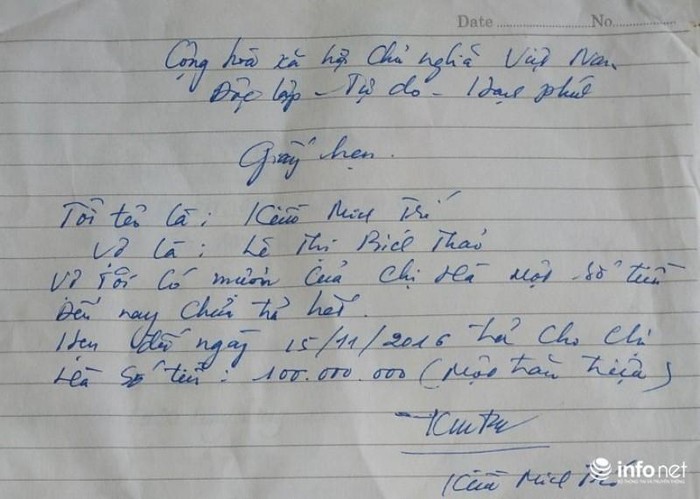 Date ........... No...............
Cộng hòa xã hội Chủ nghĩa Việt Nam
Độc lập - Tự do - Hạnh phúc
Giấy hẹn.
Tôi tên là: Kiều Minh Trí
Vợ là: Lê Thị Bích Thảo
Vợ Tôi có mượn của chị Hà một số tiền
Đến nay chưa trả hết.
Hẹn đến ngày 15/11/2016 trả cho chị
Hà số tiền: 100.000.000 (Một trăm triệu)
Kiều Minh Trí
infonet